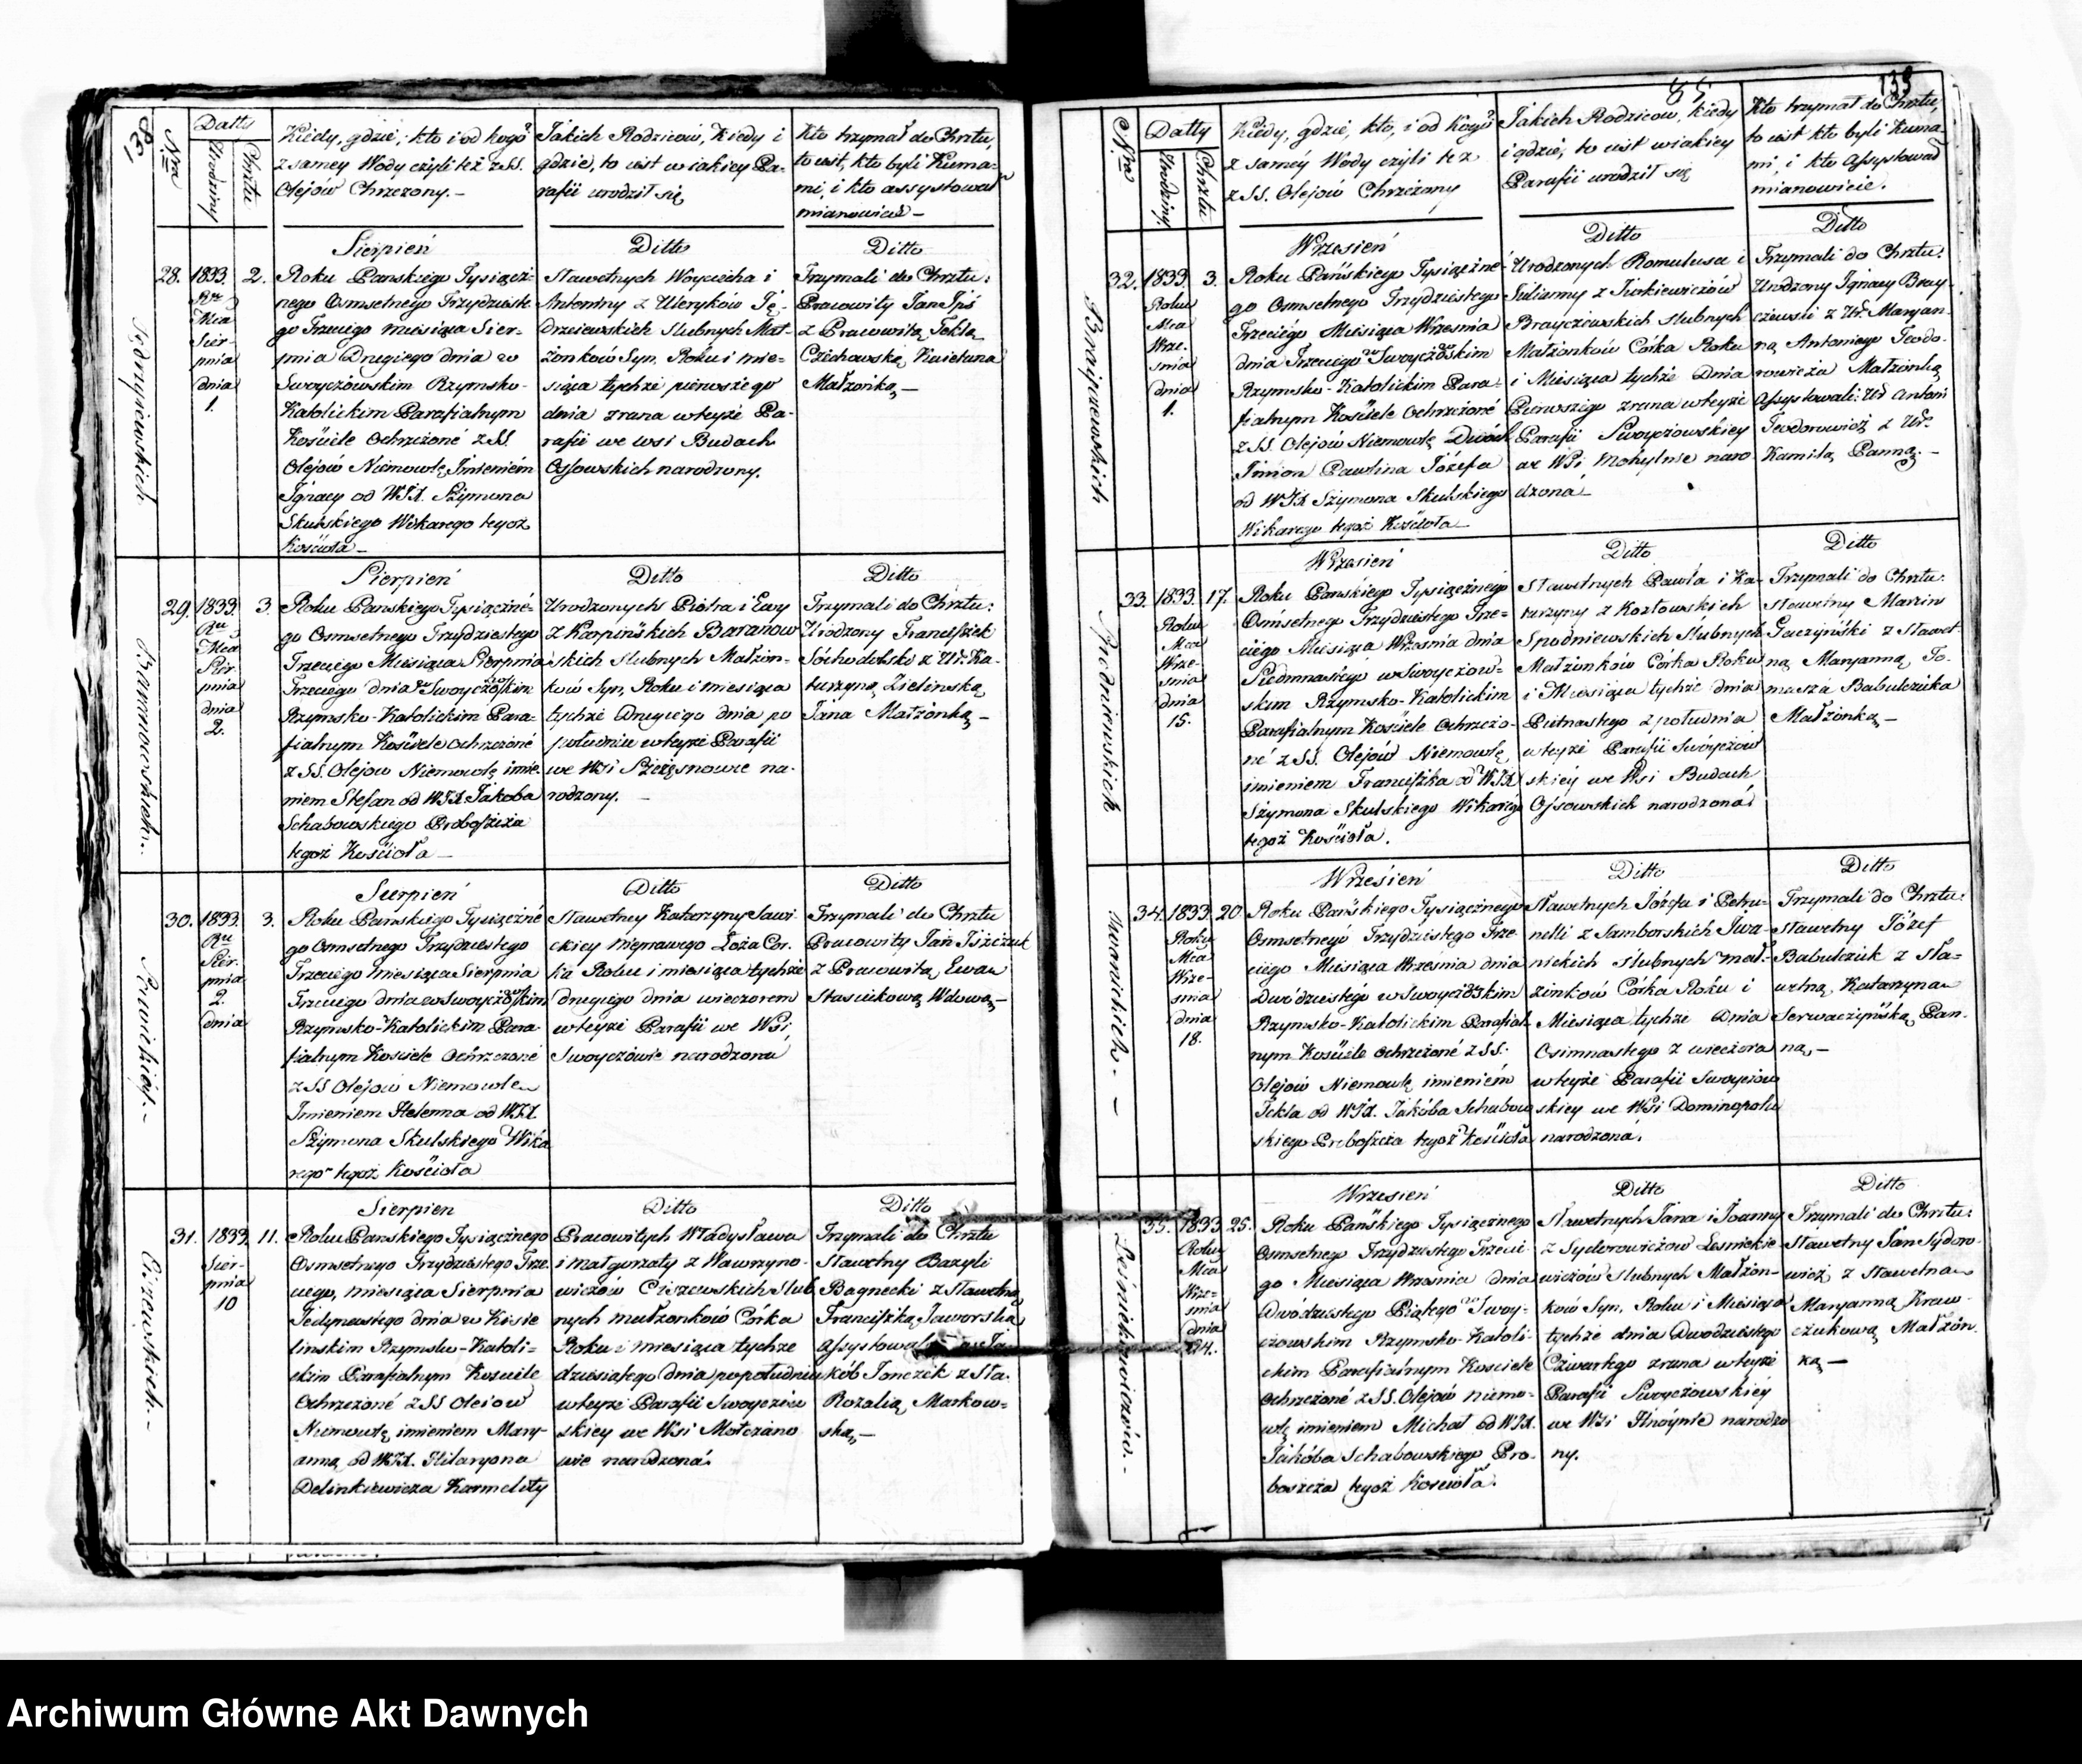 Nra
Datty
Urodziny
Chrztu
Kiedy, gdzie, kto i od kogo
z samey Wody czyli też z SS.
Olejów Chrzczony.-
Jakich Rodziców, Kiedy i
gdzie, to iest w iakiey Pa-
rafii urodził się
Kto trzymał do Chrztu,
to iest, kto byli Kuma-
mi, i kto assystował
mianowicie-
Jędrzeiewskich
28.
1833.
Mca
Sier-
pnia
dnia
1.
2.
Sierpień
Roku Panskiego Tysiącz-
nego Osmsetnego Trzydzieste-
go Trzeciego miesiąca Sier-
pnia Drugiego dnia w
Swoyczowskim Rzymsko-
Katolickim Parafialnym
Kościele Ochrzczoné z SS
Olejów Niemowlę Jmieniem
Jgnacy od WJX. Szymona
Skulskiego Wikarego tegoż
Kościoła-
Ditto
Stawetnych Woyciecha i
Antoniny z Uleryków Ję-
drzeiewskich Slubnych Mał-
żonków Syn, Roku i mie-
siąca tychże pierwszego
dnia zrana wteyże Pa-
rafii we wsi Budach
Ossowskich narodzony.
Ditto
Trzymali do Chrztu:
Pracowity Jan
z Pracowitą Teklą
Czechowską Kwietana
Małżonką,-
Baranowskich.
29.
1833.
Ru
Mca
Sier-
pnia
dnia
2.
3.
Sierpień
Roku Panskiego Tysiączné-
go Osmsetnego Trzydziestego
Trzeciego Miesiąca Sierpnia
Trzeciego dnia w Swoyczowskim
Rzymsko-Katolickim Para-
fialnym Kościele ochrzczoné
z SS. Olejow Niemowlę imie-
niem Stefan od WJX. Jakoba
Schabowskiego Proboszcza
tegoż Kościoła-
Ditto
Urodzonych Piotra i Ewy
z Karpińskich Baranow
skich Slubnych Małżon-
ków Syn, Roku i miesiąca
tychże Drugiego dnia po
południu wteyże Parafii
we Wsi na-
rodzony.-
Ditto
Trzymali do Chrztu:
Urodzony Franciszek
z Ur. Ka-
tarzyną Zielinską
Jana Małżonką-
Sawickiéj.-
30.
1833.
Ru
Sier-
pnia
2.
dnia
3.
Sierpień
Roku Panskiego Tysiączné
go Osmsetnego Trzydziestego
Trzeciego miesiąca Sierpnia
Trzeciego dnia w Swoyczowskim
Rzymsko-Katolickim Para-
fialnym Kosciele Ochrzczoné
z SS Olejow Niemowle
Jmieniem Helenna od WJX.
Szymona Skulskiego Wika
rego tegoż Kościoła
Ditto
Stawetney Katarzyny Sawi-
ckiey nieprawego Łoża Cor-
ka Roku i miesiąca tychże
drugiego dnia wieczorem
wteyże Parafii we Wsi
Swoyczówie narodzona
Ditto
Trzymali do Chrztu
Pracowity Jan
z Pracowitą Ewą
Stasiukową Wdową,-
Ciszewskich.-
31.
1833.
Sier-
pnia
10
11.
Sierpien
Roku Panskiego Tysiącznego
Osmsetnego Trzydziestego Trze-
ciego, miesiąca Sierpnia
Jedynastego dnia w Kisie
linskim Rzymsko-Katoli-
ckim Parafialnym Kosciele
Ochrzczoné z SS Oleiow
Niemowlę imieniem Mary-
anna od WJX. Hilaryona
Delinkiewicza Karmelity
Ditto
Pracowitych Władysława
i małgorzaty z Wawrzyno-
wiczów Ciszewskich Slub
nych małzonków Córka
Roku i miesiąca tychże
dziesiątego dnia popołudniu
wteyże Parafii Swoyczów
skiey we Wsi Mołczano
wie narodzoná.
Ditto
Trzymali do Chrztu
Stawetny Bazyli
Bagnecki z Stawetną
Franciszką Jaworską
assystowali Ja-
kób Jonczik z Sta.
Rozalią Markow-
ską,-
85
138
Nra
Datty
Urodziny.
Chrztu
Kiedy, gdzie, kto, i od Kogo
z saméy Wody czyli też
z SS. Olejów Chrzczony
Jakich Rodzicow, kiedy
i gdzie, to iest wiakiey
Parafii urodził się
Kto trzymał do Chrztu,
to iest kto byli Kuma-
mi, i kto assystował
mianowicie.
Brayczewskich
32.
1833.
Roku
Mca
Wrze-
śnia
dnia
1.
3.
Wrzesień
Roku Pańskiego Tysiączné-
go Osmsetnego Trzydziestego
Trzeciégo Miesiąca Wrzesnia
dnia Trzeciego w Swoyczowskim
Rzymsko-Katolickim Para-
fialnym Kościele Ochrzczoné
z SS. Olejów Niemowlę Dwóch
Jmion Pawlina Józefa
od WJX Szymona Skulskiego
Wikarego tegoż Kościoła-
Ditto
Urodzonych Romulusa i
Julianny z Jurkiewiczów
Brayczewskich slubnych
Małżonków Córka Roku
i Miesiąca tychże Dnia
Pierwszego zrana wteyże
Parafii Swoyczowskiey
we Wsi Mohylnie naro
dzoná-
Ditto
Trzymali do Chrztu:
Urodzony Jgnacy Bray-
czewski z Ur. Maryan-
ną Antoniego Teodo-
rowicza Małżonką
Assystowali: Ur Antoni
Teodorowicz z Ur.
Kamilą Panną.-
Spodniewskich
33.
1833.
Roku
Mca
Wrze-
śnia
dnia
15.
17.
Wrzesień
Roku Panskiego Tysiącznégo
Osmsetnego Trzydziestego Trze-
ciégo Miesiąca Wrzesnia dnia
Siedmnastego w Swoyczow-
skim Rzymsko-Katolickim
Parafialnym Kościele Ochrzczo-
né z SS. Olejów Niemowlę
imieniem Franciszka od WJX
Szymona Skulskiego Wikarégo
tegoż Kościoła.
Ditto
Stawetnych Pawła i Ka-
tarzyny z Kozłowskich
Spodniewskich Ślubnych
Małżonków Córka Roku
i Miesiąca tychże dnia
Pietnastego z południa
wteyże Parafii Swóyczow
skiéy we Wsi Budach
Ossowskich narodzoná
Ditto
Trzymali do Chrztu:
Stawetny Marcin
Gaczyński z Stawet-
ną Maryanną To-
masza Babulczika
Małżonką,-
Jwanickich.-
34.
1833.
Roku
Mca
Wrze-
śnia
dnia
18.
20.
Wrzésień
Roku Pańskiego Tysiącznego
Osmsetnego Trzydziestego Trze-
ciego Miesiąca Września dnia
Dwódziestégo w Swoyczowskim
Rzymsko-Katolickim Parafial-
nym Kościele Ochrzczoné z SS.
Olejów Niemowlę imieniém
Tekla od WJX. Jakóba Schabow
skiego Proboszcza tegoż Kościoła
Ditto
Stawetnych Józefa i Petro-
nelli z Samborskich Jwa-
nickich Slubnych mał-
żonków Córka Roku i
Miesiąca tychże Dnia
Osimnastego z wieczora
wteyże Parafii Swoyczow
skiey we Wsi Dominopolu
narodzoná.
Ditto
Trzymali do Chrztu:
Stawetny Józef
Babulczik z Sta-
wetną Katarzyną
Serwaczyńską Pan-
ną,-
Leśniékiewiczów.-
35.
1833.
Roku
Mca
Wrze-
śnia
dnia
24.
25.
Wrzesień
Roku Pańskiego Tysiącznego
Osmsetnego Trzydziestego Trzecié-
go Miesiąca Wrzesnia dnia
Dwódziestego Piątego w Swoy-
czowskim Rzymsko-Katoli-
ckim Parafialnym Kosciele
Ochrzczoné z SS. Olejów niemo-
wlę imieniem Michał od WJX.
Jakóba Schabowskiego Pro-
boszcza tegoż Kościoła.
Ditto
Stawetnych Jana i Joanny
z Syderowiczów Lesniekie-
wiczów Slubnych Małżon-
ków Syn, Roku i Miesiąca
tychże dnia Dwodziéstego
Czwartego zrana wteyże
Parafii Swoyczowskiéy
we Wsi narodzo
ny.
Ditto
Trzymali do Chrztu:
Stawetny Jan Sydoro-
wicz z Stawetną
Maryanną Kraw-
czukową Małżon-
ką-
Archiwum Główne Akt Dawnych